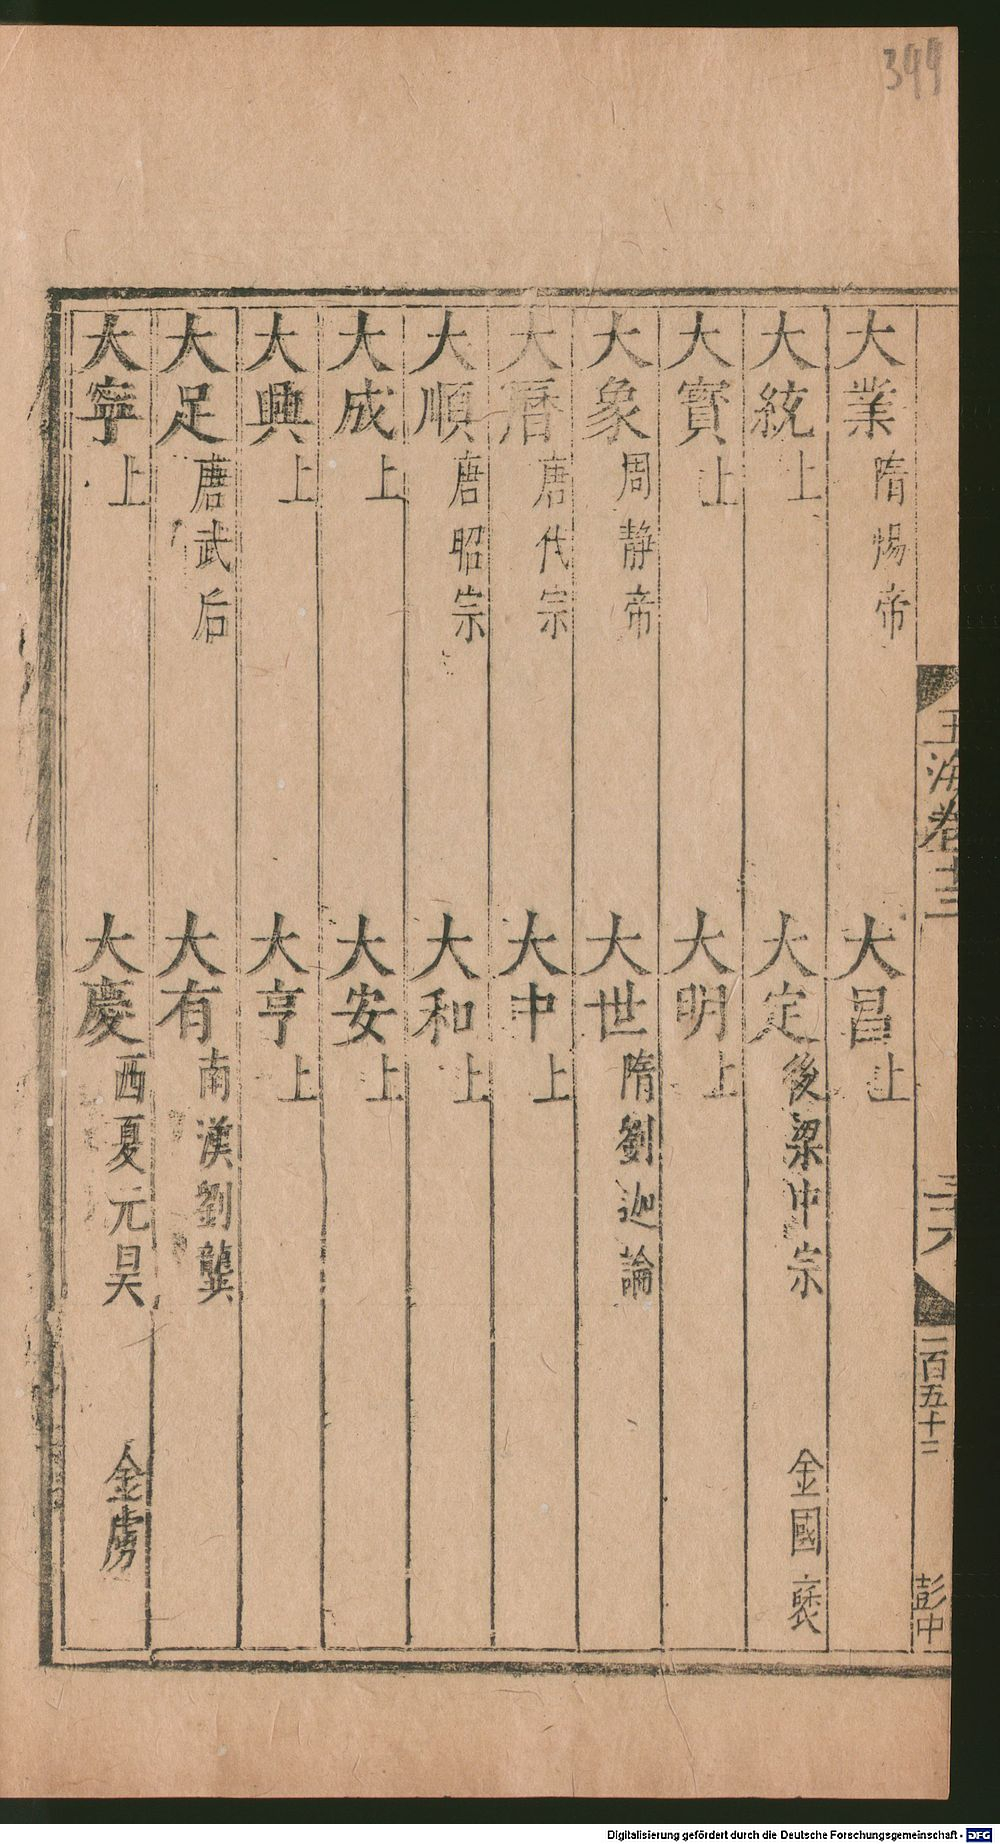 399
玉海卷十三
三十八
一百五十二
彭中
大業 隋煬帝 大昌 上
大統 上 大定 後梁中宗 金國裦
大寳 上 大明 上
大象 周静帝 大世 隋劉迦論
大曆 唐代宗 大中 上
大順 唐昭宗 大和 上
大成 上 大安 上
大興 上 大亨 上
大足 唐武后 大有 南漢劉龑
大寧 上 大慶 西夏元昊 金虜
Digitalisierung gefördert durch die Deutsche Forschungsgemeinschaft - DFG